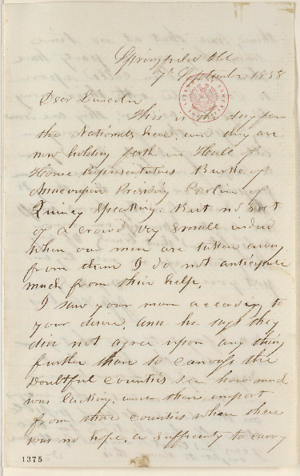 Springfield Ills
7th September 1858
Dear Lincoln
This is the day for
the Nationals here, and they are
now holding forth in Hall of
House Representatives Burke of
Macoupin Presiding
Quincy Speaking. But no not
of a crowd very small indeed
when our men are taken away
from them I do not anticipate
much from their help.
I saw your man according to
your desire, and he says they
did not agree upon any thing
further than to canvass the
Doubtful counties see how much
was lacking, and then import
from those counties where there
was no hope, a sufficiency to carry
1375